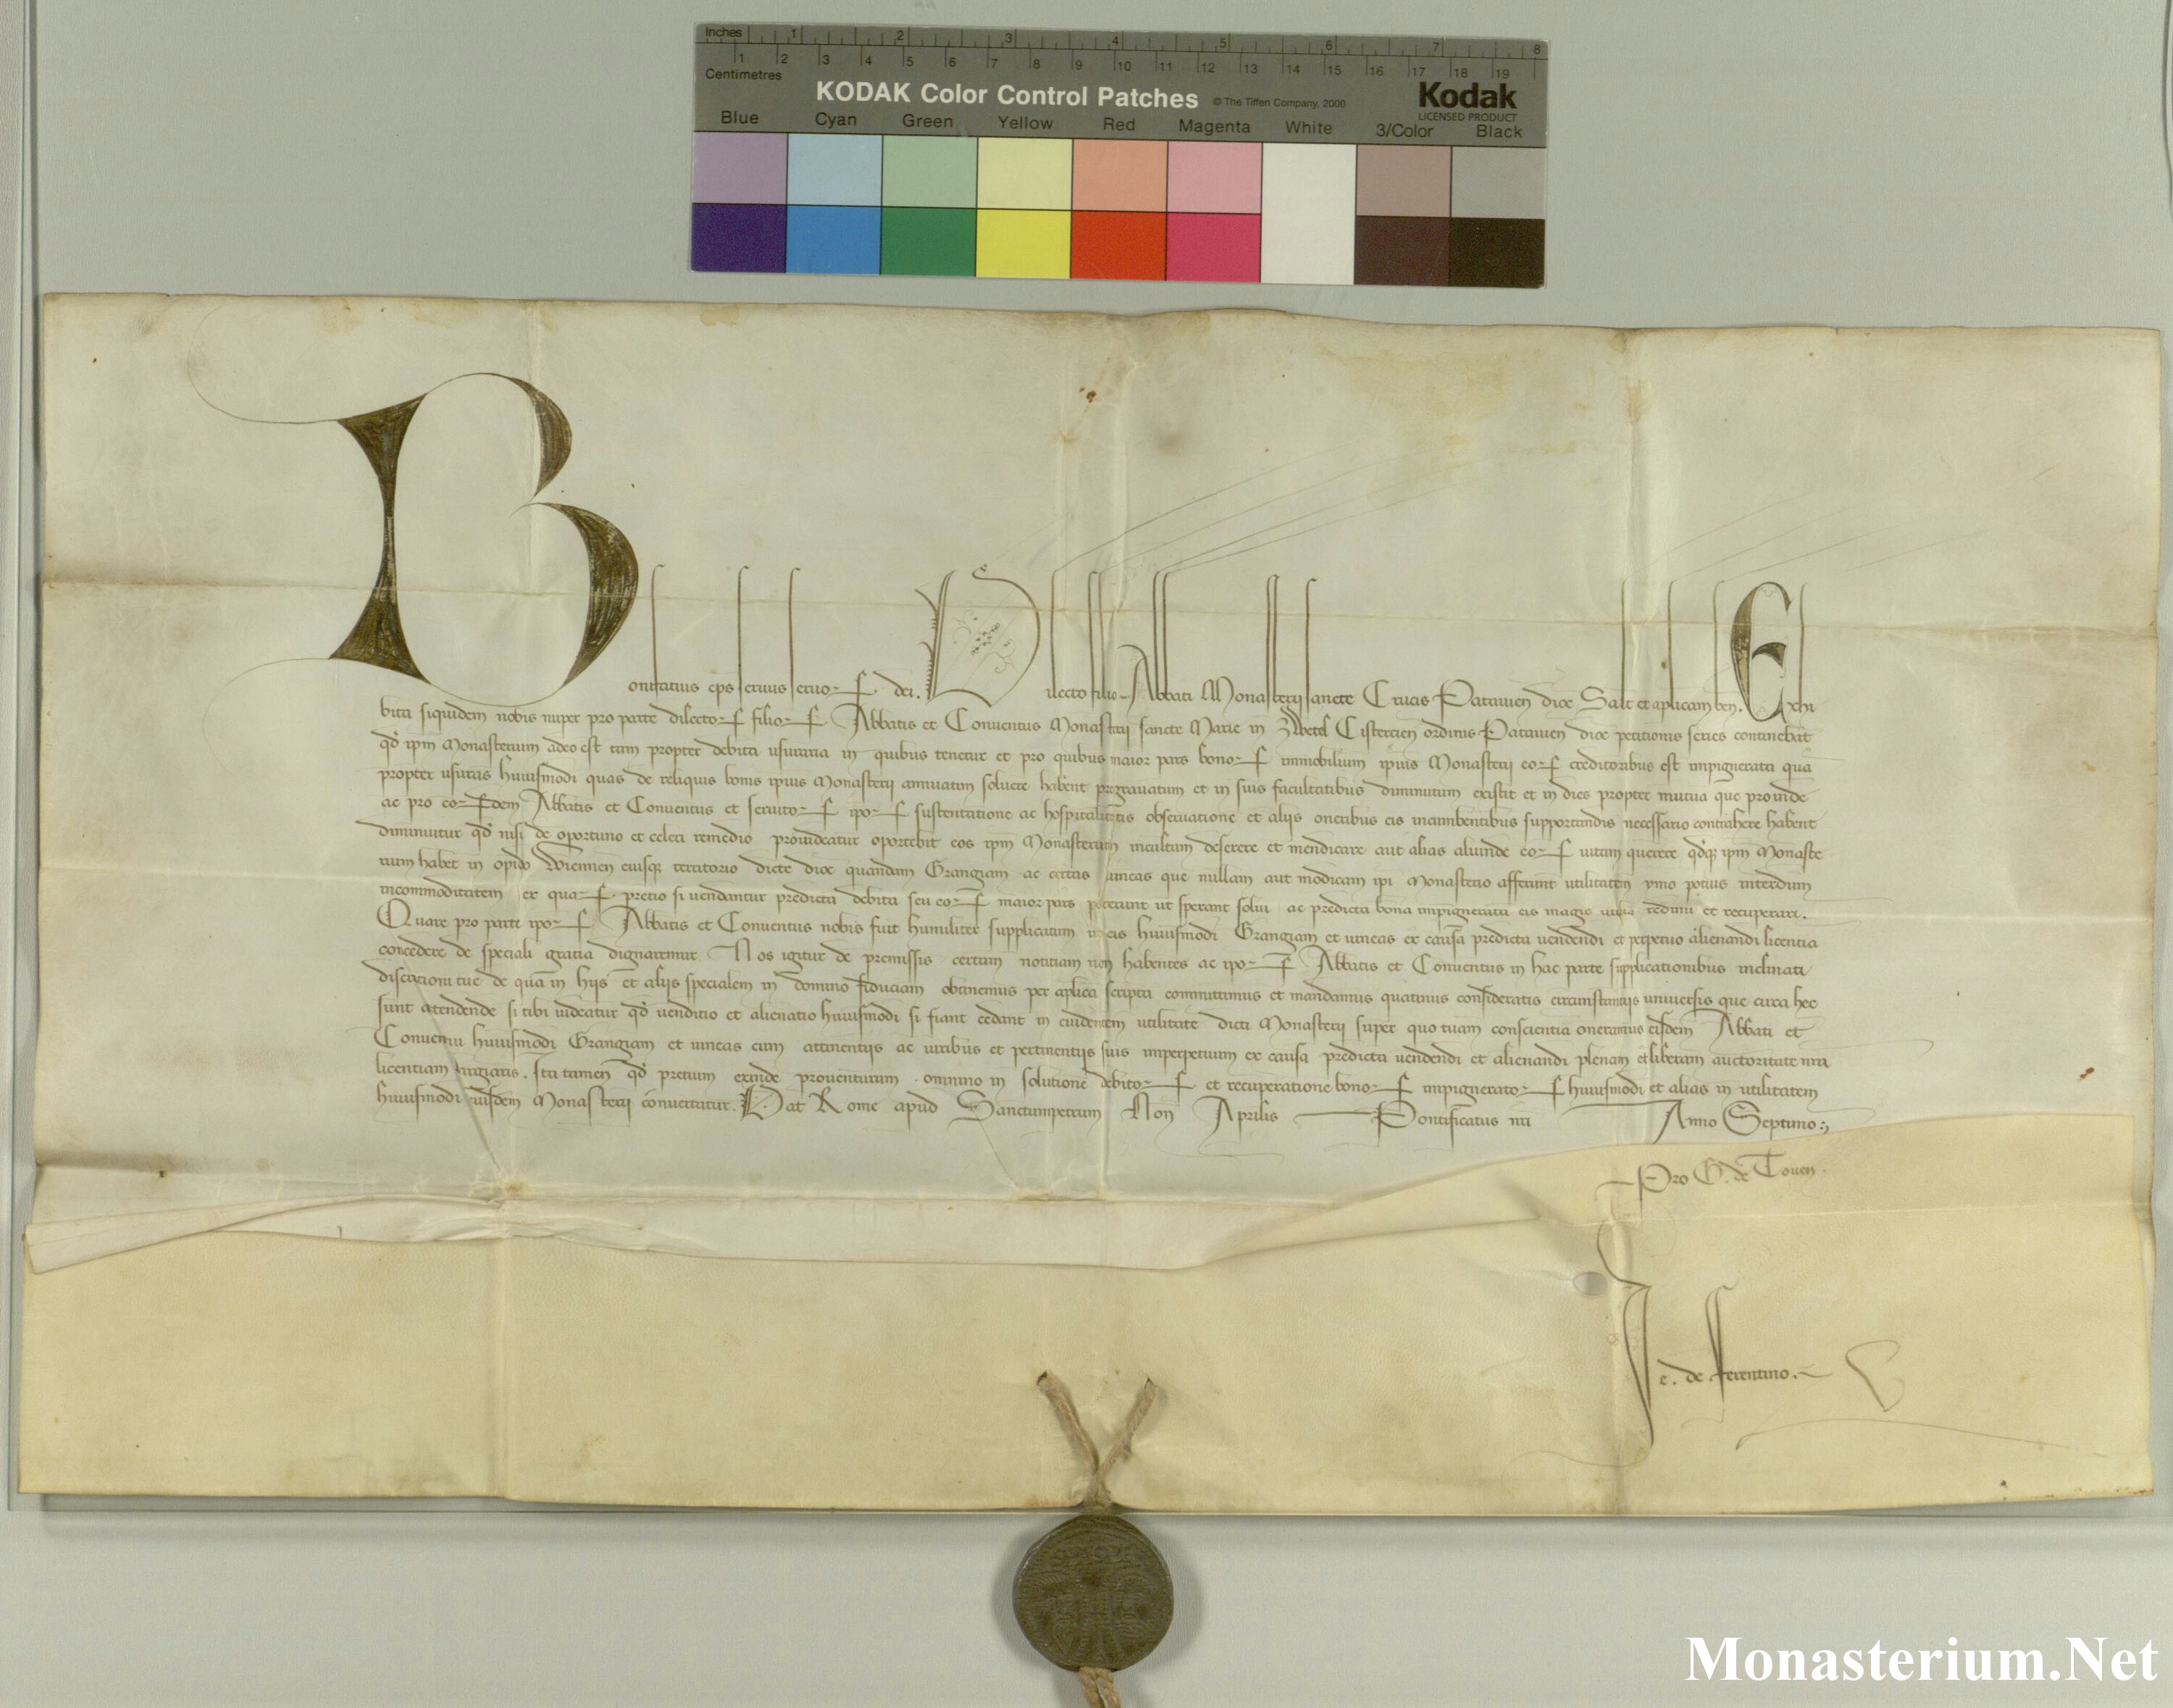 Inches 1 2 3 4 5 6 7 8
1 2 3 4 5 6 7 8 9 10 11 12 13 14 15 16 17 18 19
Centimetres
KODAK Color Control Patches © The Tiffen Company, 2000 Kodak
LICENSED PRODUCT
Blue Cyan Green Yellow Red Magenta White 3/Color Black
Bonifatius eps seruus seruoꝝ dei. Dilecto filio Abbati Monasterij sancte Crucis Patauien dioc Salt et aplicam ben. Exhi
bita siquidem nobis nuper pro parte dilectoꝝ filioꝝ Abbatis et Conuentus Monasterij sancte Marie in Zwetel Cistercien ordinis Patauien dioc petitionis series continebat
qd ipm Monasterium adeo est tam propter debita usuraria in quibus tenetur et pro quibus maior pars bonoꝝ immobilium ipius Monasterij eoꝝ creditoribus est impignerata qua
propter usuras huiusmodi quas de reliquis bonis ipius Monasterij annuatim soluere habent pregrauatum et in suis facultatibus diminutum existit et in dies propter mutua que proinde
ac pro eoꝝdem Abbatis et Conuentus et seruitoꝝ ipoꝝ sustentatione ac hospitalitatis obseruatione et aliis oneribus eis incumbentibus supportandis necessario contrahere habent
diminuitur qd nisi de oportuno et celeri remedio prouideatur oportebit eos ipm Monasterium incultum deserere et mendicare aut alias aliunde eoꝝ uitam querere qdqꝫ ipm Monaste
rium habet in opido Wiennen eiusqꝫ territorio dicte dioc quandam Grangiam ac certas uineas que nullam aut modicam ipi Monasterio afferunt utilitatem ymo potius interdum
incommoditatem ex quaꝝ pretio si uendantur predicta debita seu eoꝝ maior pars poterunt ut sperant solui ac predicta bona impignerata eis magis utilia redimi et recuperari.
Quare pro parte ipoꝝ Abbatis et Conuentus nobis fuit humiliter supplicatum ut eis huiusmodi Grangiam et uineas ex causa predicta uendendi et perpetuo alienandi licentia
concedere de speciali gratia dignaremur Nos igitur de premissis certam notitiam non habentes ac ipoꝝ Abbatis et Conuentus in hac parte supplicationibus inclinati
discretioni tue de qua in hijs et aliis specialem in domino fiduciam obtinemus per aplica scripta committimus et mandamus quatinus consideratis circumstantijs uniuersis que circa hec
sunt attendende si tibi uideatur qd uenditio et alienatio huiusmodi si fiant cedant in euidentem utilitate dicti Monasterij super quo tuam conscientia oneramus eisdem Abbati et
Conuentui huiusmodi Grangiam et uineas cum attinentijs ac iuribus et pertinentijs suis imperpetuum ex causa predicta uendendi et alienandi plenam et liberam auctoritate nra
licentiam largiaris. Ita tamen qd pretium exinde prouenturum omnino in solutione debitoꝝ et recuperatione bonoꝝ impigneratoꝝ huiusmodi et alias in utilitatem
huiusmodi eiusdem Monasterij conuertatur. Dat Rome apud Sanctumpetrum Non Aprilis Pontificatus nri Anno Septimo
Pro G. de Touen.
Ie. de Ferentino.
Monasterium.Net